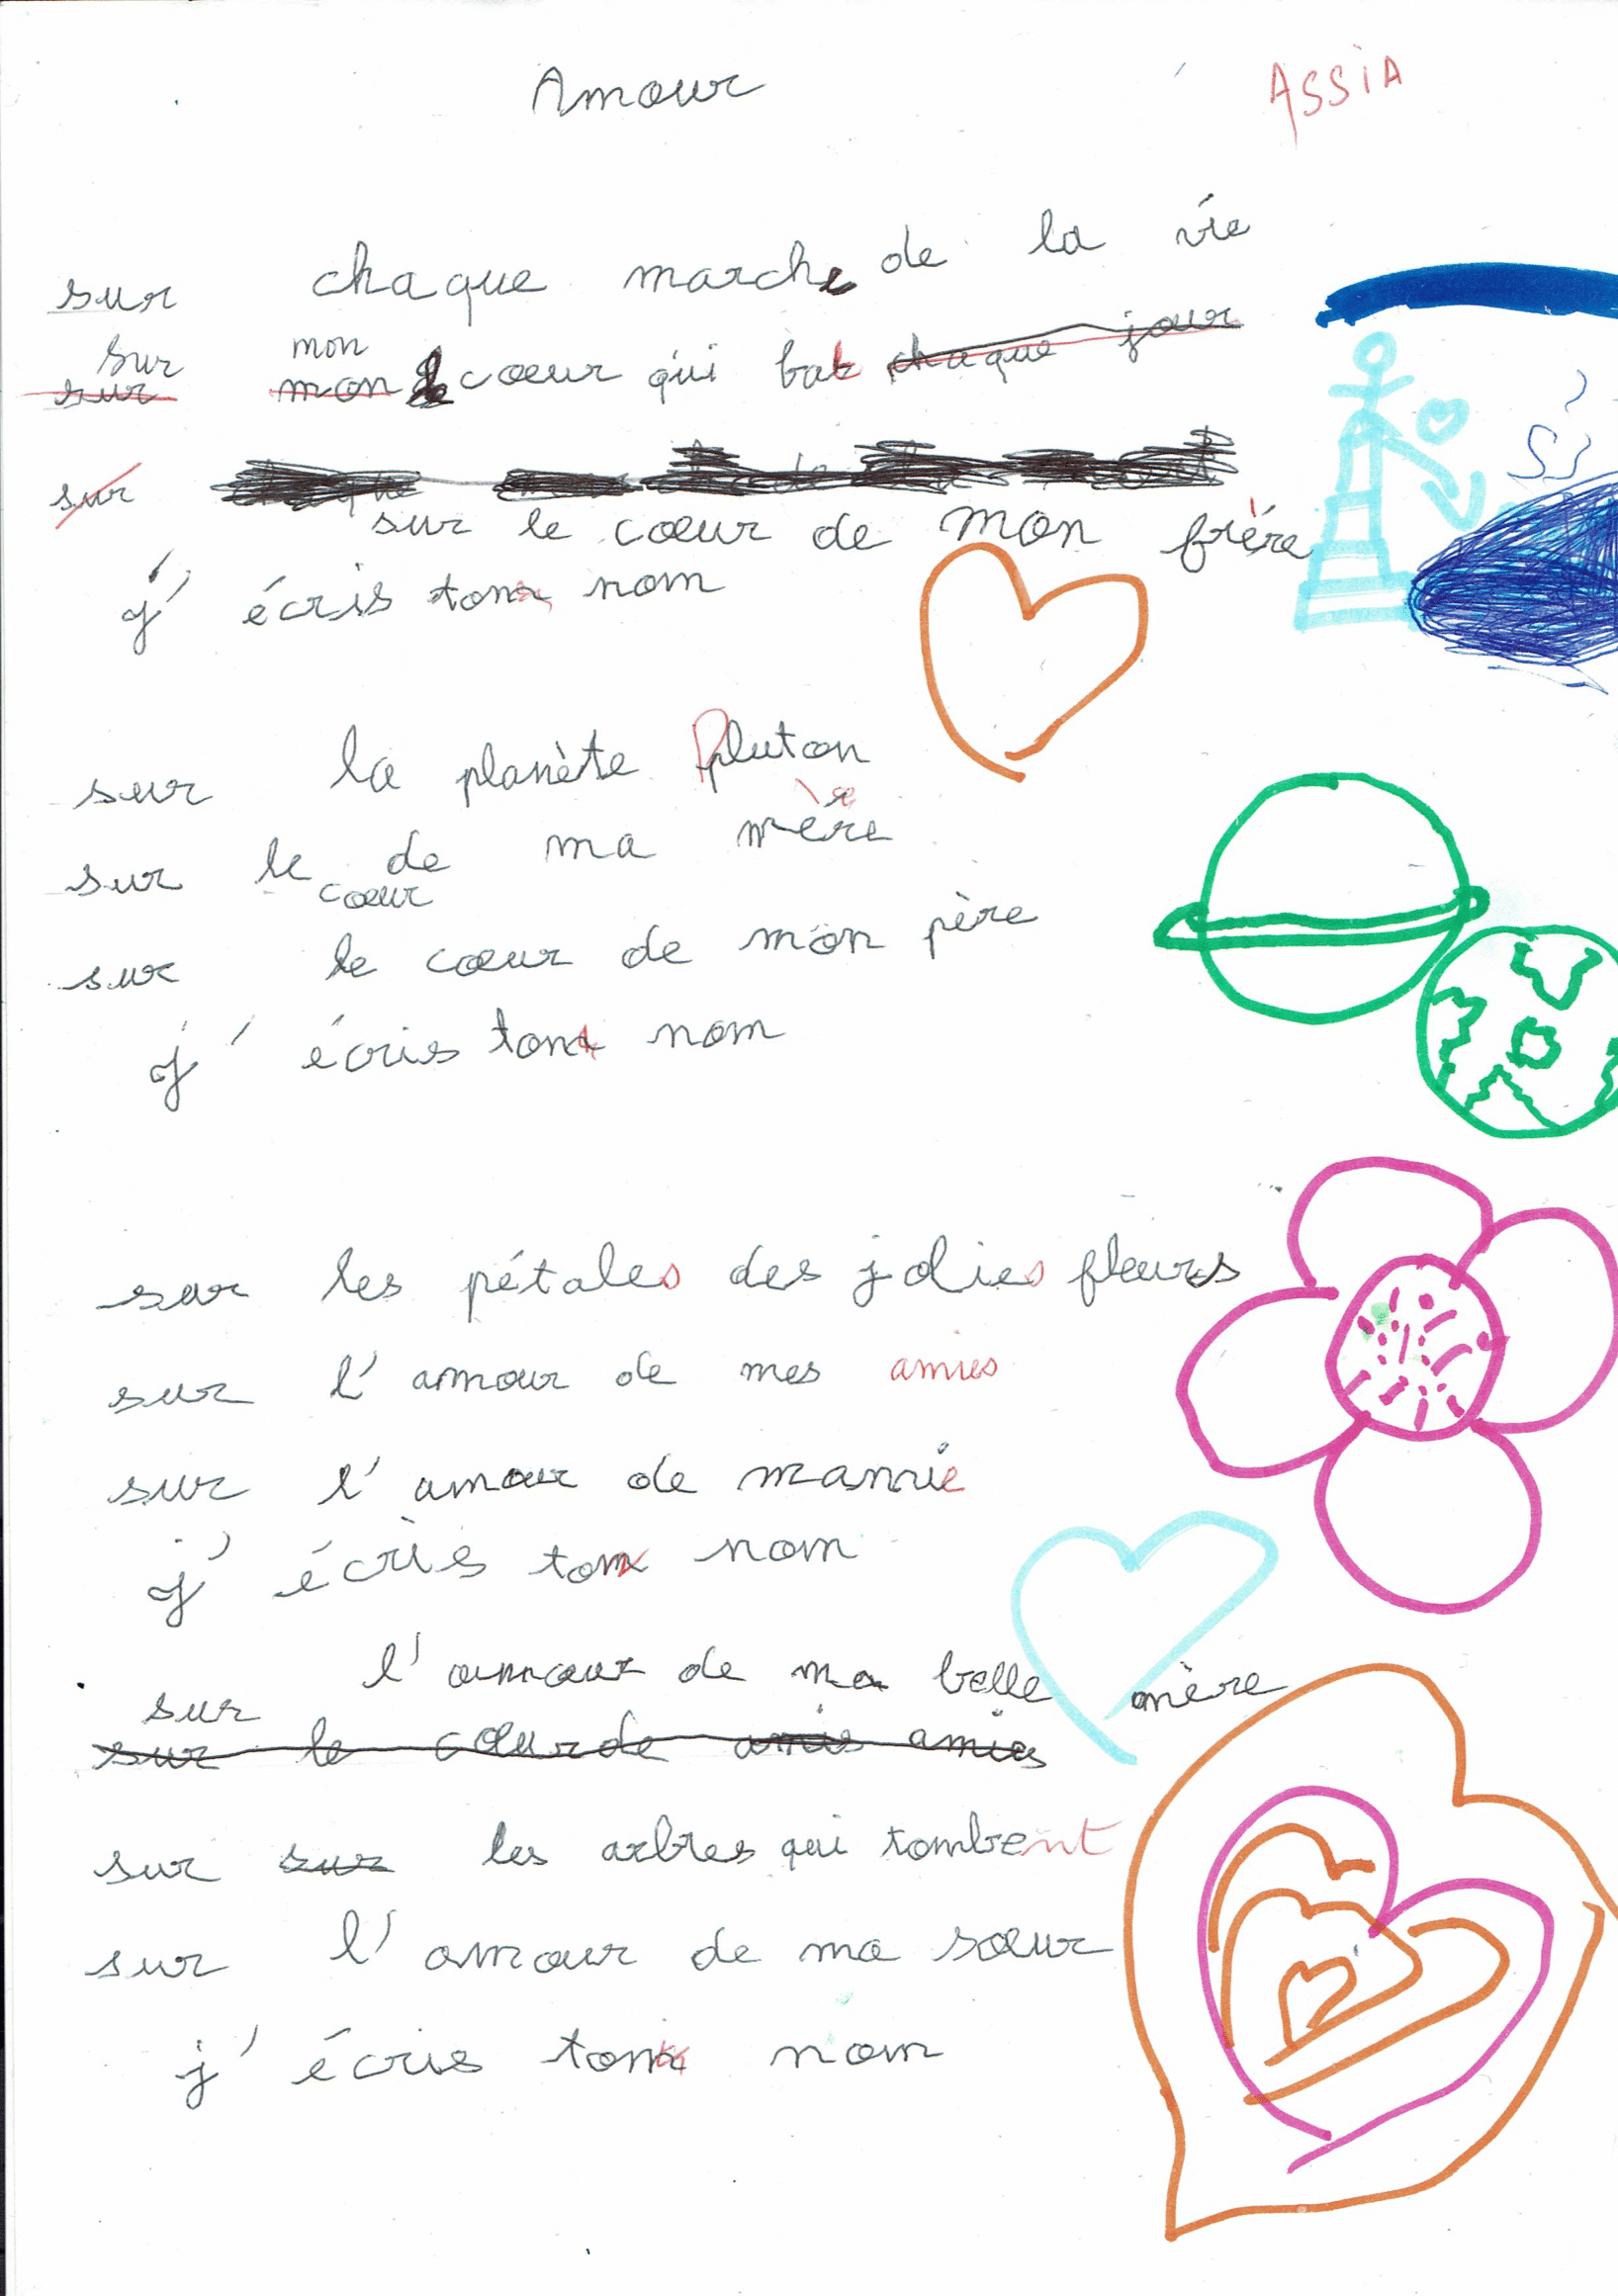 Amour
ASSIA
sur chaque marche de la vie
sur mon
sur mon coeur qui bat chaque jour
sur
sur le coeur de mon frère
j' écris ton nom
sur la planète Pluton
sur le de ma mère
coeur
sur le coeur de mon père
j' écris ton nom
sur les pétales des jolies fleurs
sur l' amour de mes amies
sur l' amour de mamie
j' écris ton nom
sur l' amour de ma belle mère
sur le coeur de amis amies
sur sur les arbres qui tombent
sur l' amour de ma soeur
j' écris ton nom